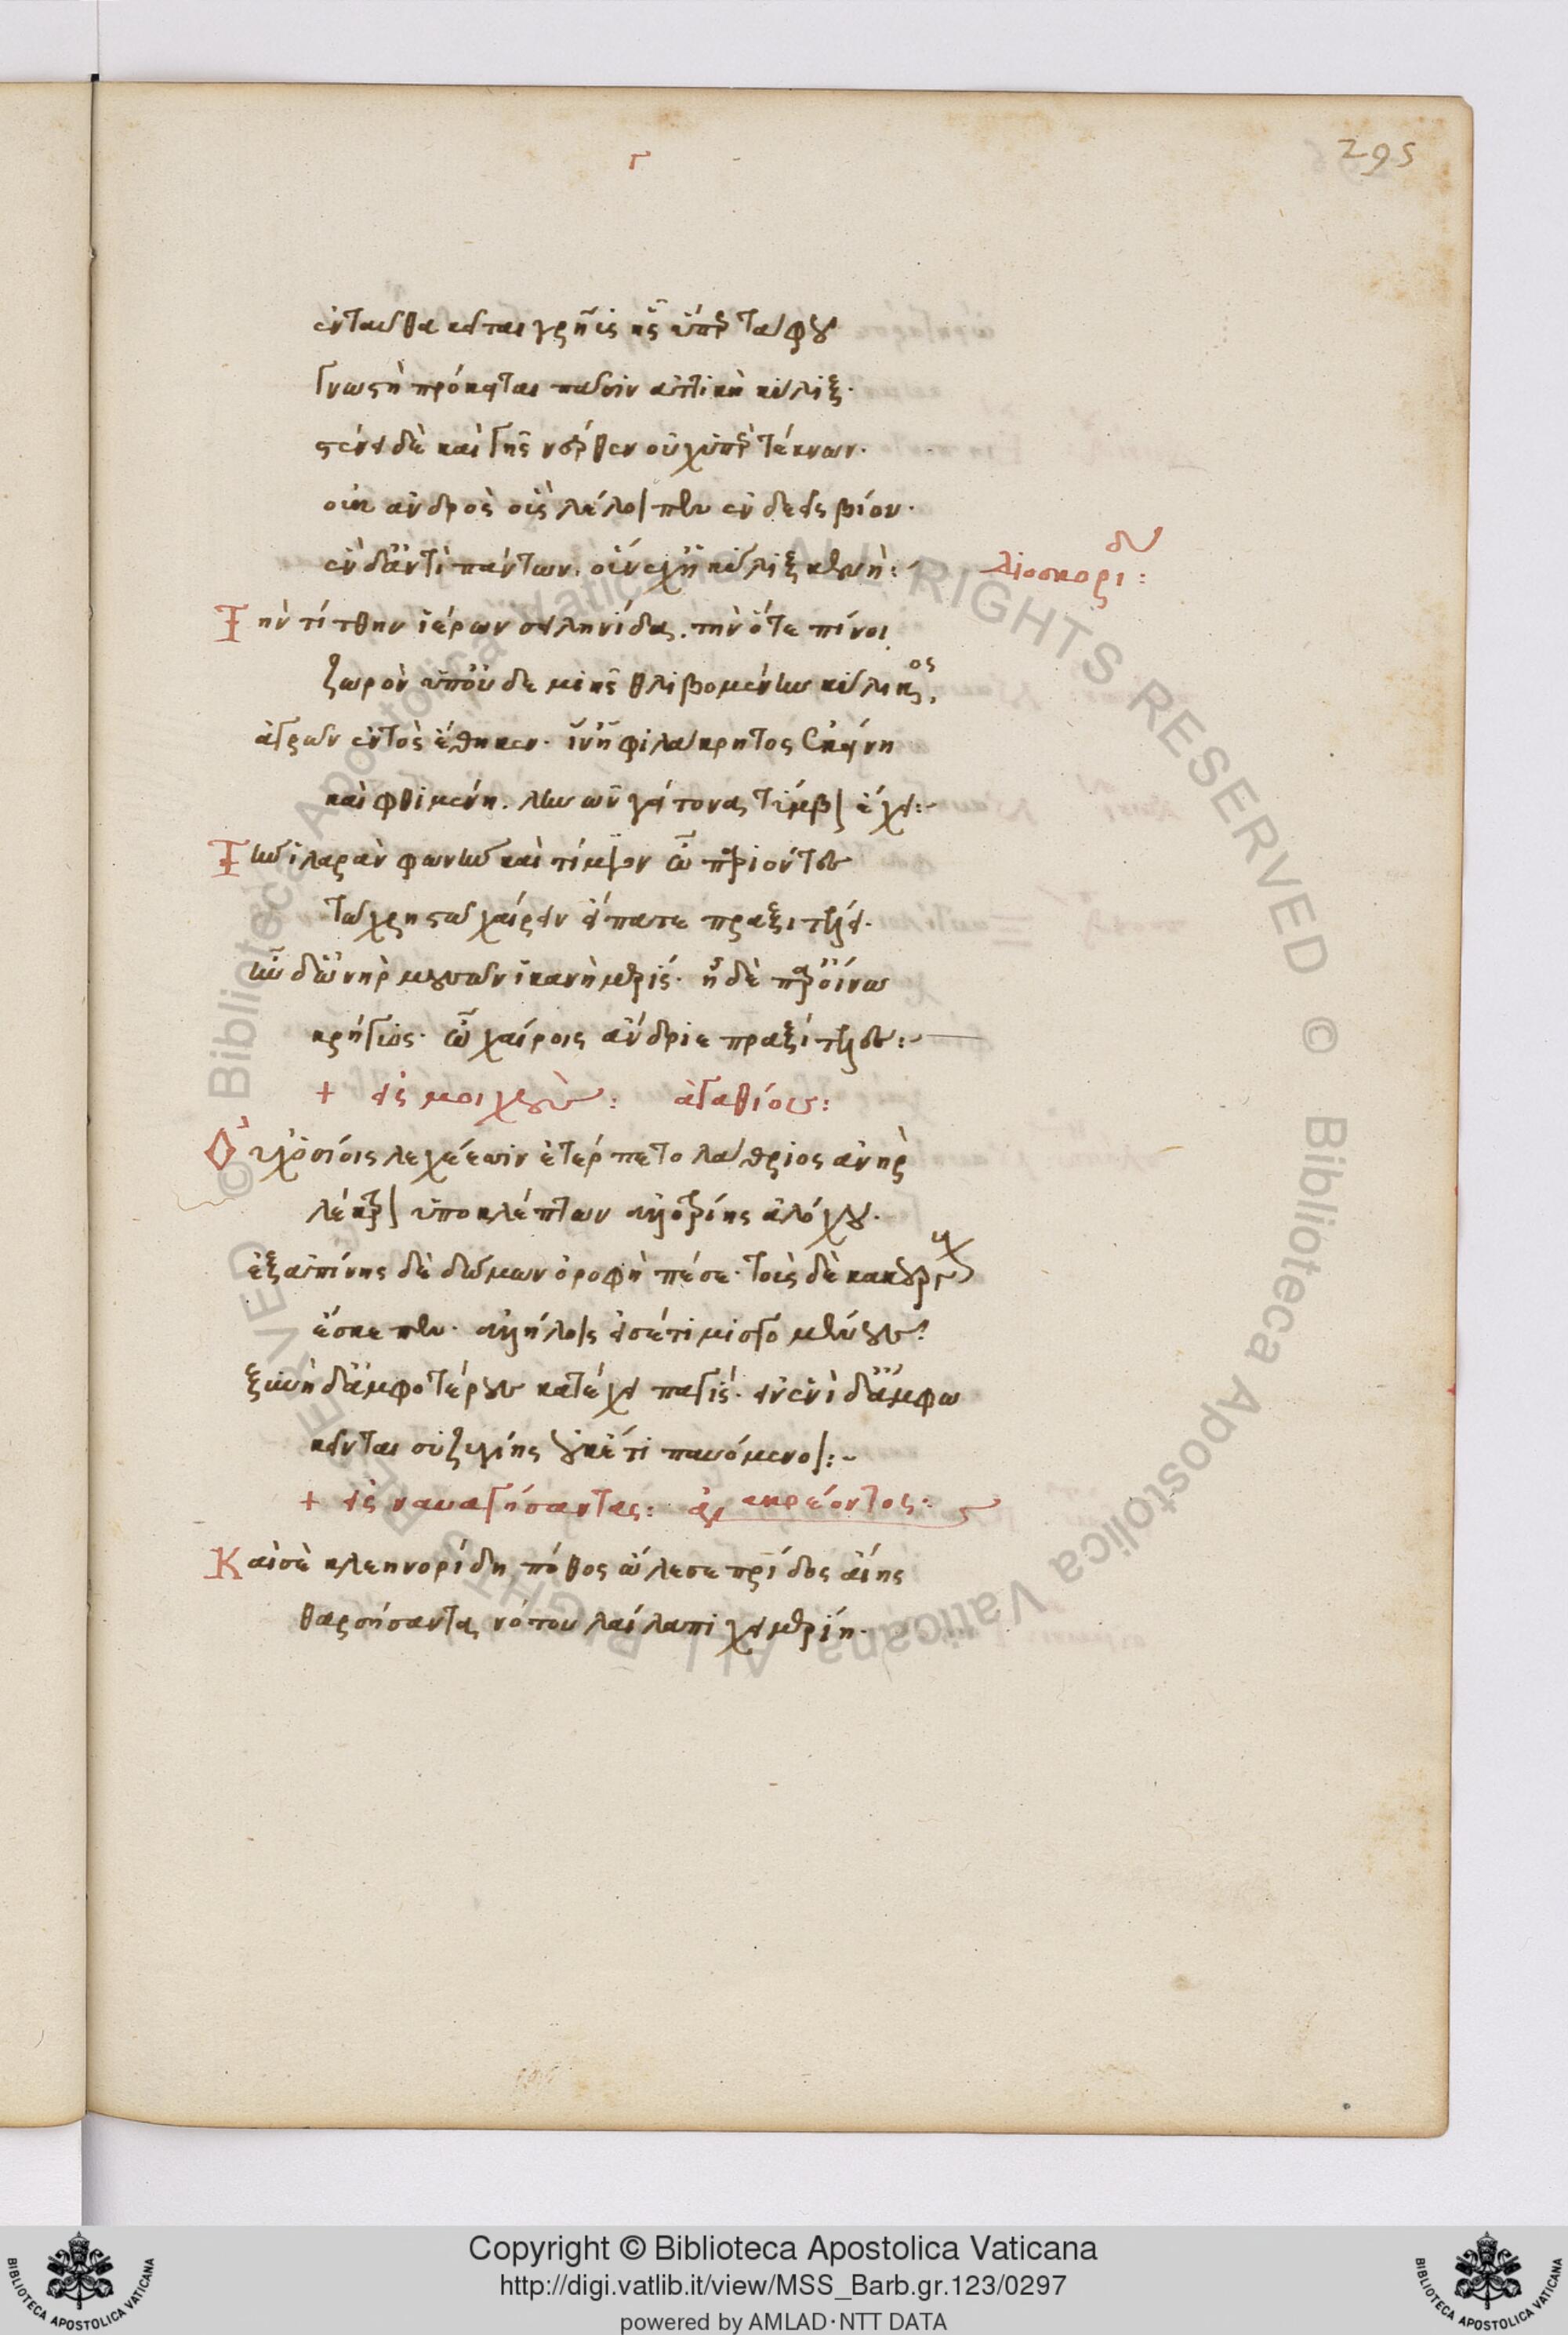 Γ
295
ἐνταῦθα κεῖται γρηῢς ἧς ὑπὲρ τάφου
γνωστὴ πρόκειται πᾶσιν ἀττικὴ κύλιξ.
στένει δὲ καὶ γῆς νέρθεν οὐχ ὑπὲρ τέκνων.
οὐκ ἀνδρὸς οἷς λέλοιπεν ἐνδεεῖς βίου.
ἓν δ' ἀντὶ πάντων. οὕνεχ' ἡ κύλιξ κενή:
διοσκορί:
Τὴν τίτθην ἱέρων σειληνίδα. τὴν ὅτε πίνοι
ζωρὸν ὑπ' οὐδεμιῆς θλιβομένην κύλικος,
ἀγρῶν ἐντὸς ἔθηκεν. ἵν' ἡ φιλάκρητος ἐκείνη
καὶ φθιμένη. ληνῶν γείτονα τύμβον ἔχει:
Τὴν ἱλαρὰν φωνὴν καὶ τίμιον ὦ παριόντες
τῷ χρηστῷ χαίρειν εἴπατε πραξιτέλει.
ἦν δ' ὡνὴρ μουσῶν ἱκανὴ μερίς. ἠδὲ παρ' οἴνῳ
κρήγυος. ὦ χαίροις ἄνδριε πραξίτελες:
+ εἰς μοιχούς: ἀγαθίου:
Οὐχ ὁσίοις λεχέεσσιν ἐτέρπετο λάθριος ἀνὴρ
λέκτρον ὑποκλέπτων ἀλλοτρίης ἀλόχου.
ἐξαπίνης δὲ δόμων ὀροφὴ πέσε. τοὺς δὲ κακούργους
ἔσκεπεν. ἀλλήλοις εἰσέτι μισγομένους.
ξυνὴ δ' ἀμφοτέρους κατέχει παγίς. εἰν ἑνὶ δ' ἄμφω
κεῖνται συζυγίης οὐκέτι παυόμενοι:
+ εἰς ναυαγήσαντας: ἀνακρέοντος:
Καὶ σὲ κλεηνορίδη, πόθος ὤλεσε πατρίδος αἴης
θαρσήσαντα, νότου λαίλαπι χειμερίῃ.
Copyright © Biblioteca Apostolica Vaticana
http://digi.vatlib.it/view/MSS_Barb.gr.123/0297
powered by AMLAD·NTT DATA
BIBLIOTECA APOSTOLICA VATICANA
BIBLIOTECA APOSTOLICA VATICANA
© Biblioteca Apostolica Vaticana ALL RIGHTS RESERVED © Biblioteca Apostolica Vaticana ALL RIGHTS RESERVED